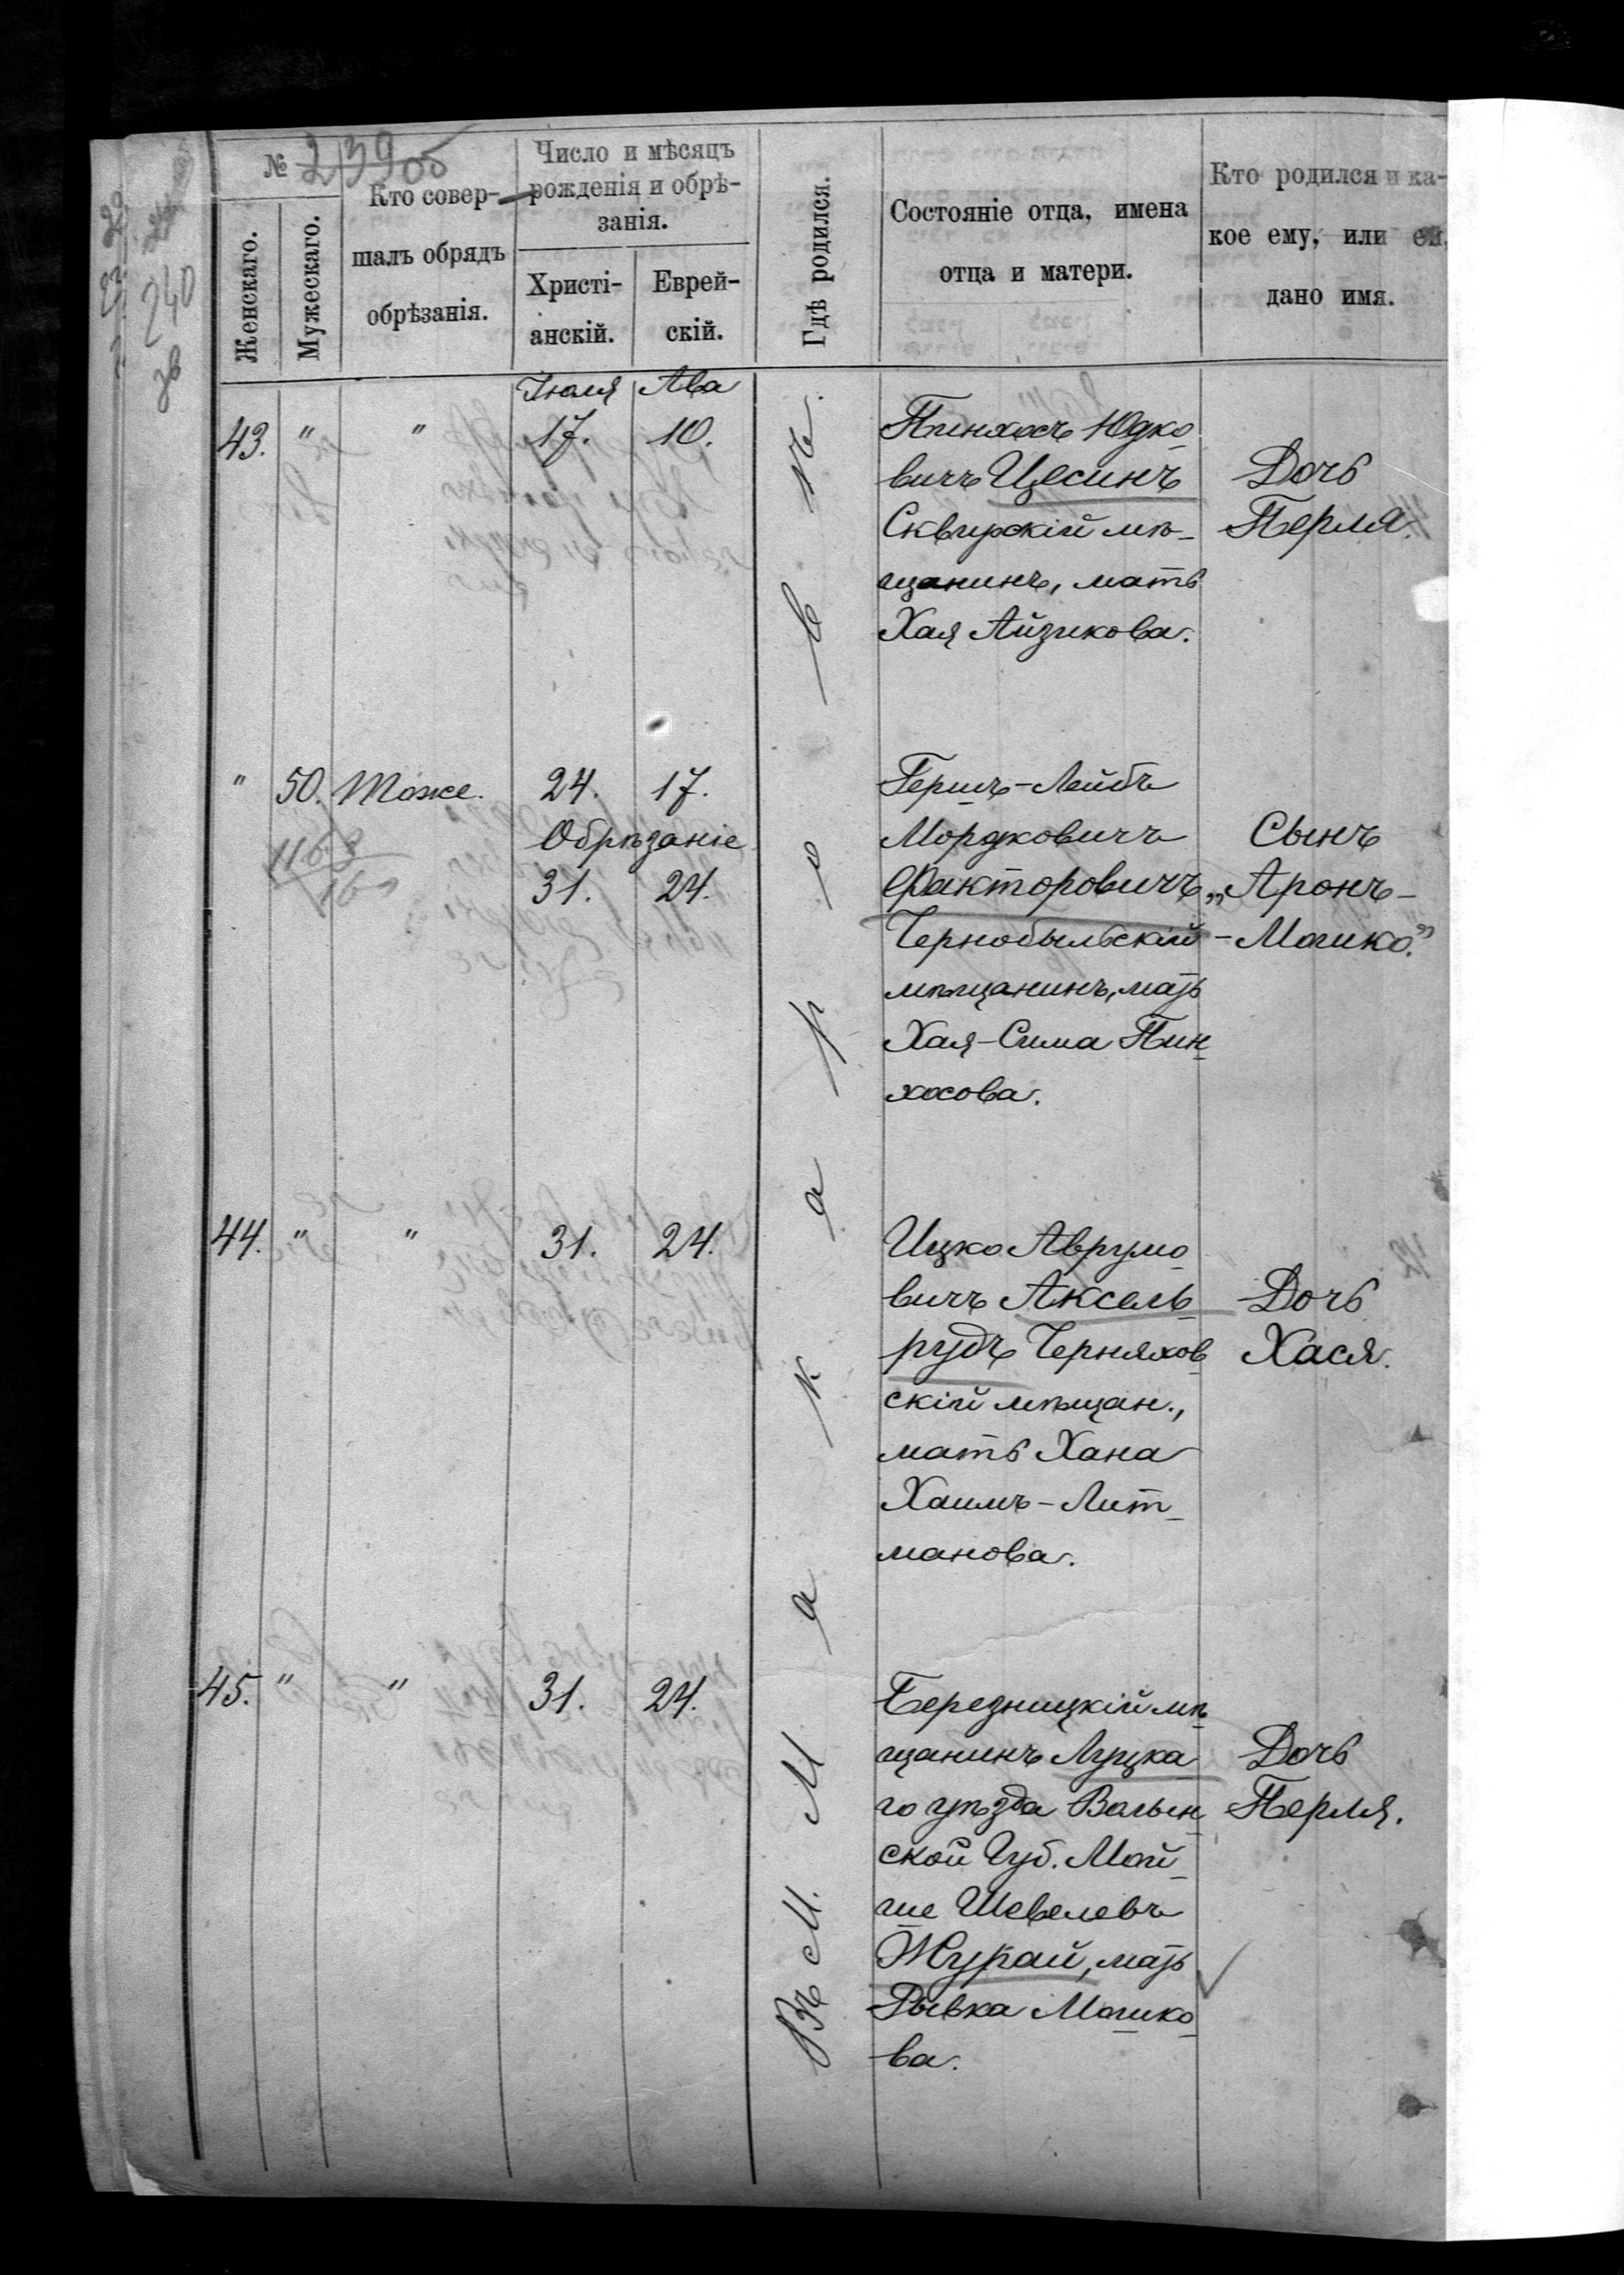 № 239об
Женскаго.
Мужескаго.
Кто совер-
шалъ обрядъ
обрѣзанія.
Число и мѣсяцъ
рожденія и обрѣ-
занія.
Христі-
анскій.
Еврей-
скій.
Гдѣ родился.
Состояніе отца, имена
отца и матери.
Кто родился и ка-
кое ему, или ей,
дано имя.
240
Въ м. Макаровѣ.
Іюля Ава
43. " " 17. 10.
Пинхасъ Юдко
вичъ Цесинъ
Сквирскій мѣ-
щанинъ, мать
Хая Айзикова.
Дочь
Перля.
" 50. Тоже. 24. 17.
Обрѣзаніе
31. 24.
1168
Гершъ-Лейбъ
Мордковичъ
Факторовичъ
Чернобыльскій
мѣщанинъ, мать
Хая-Сима Пин
хосова.
Сынъ
„Аронъ-
-Мошко."
44. " " 31. 24.
Ицко Аврумо
вичъ Аксель
рудъ Черняхов
скій мѣщан.,
мать Хана
Хаимъ-Лит
манова.
Дочь
Хася.
45. " " 31. 24.
Березницкій мѣ
щанинъ Луцка
го уѣзда Волын
ской Губ. Мой
ше Шевелевъ
Журай, мать
Рывка Мошко
ва.
Дочь
Перля.